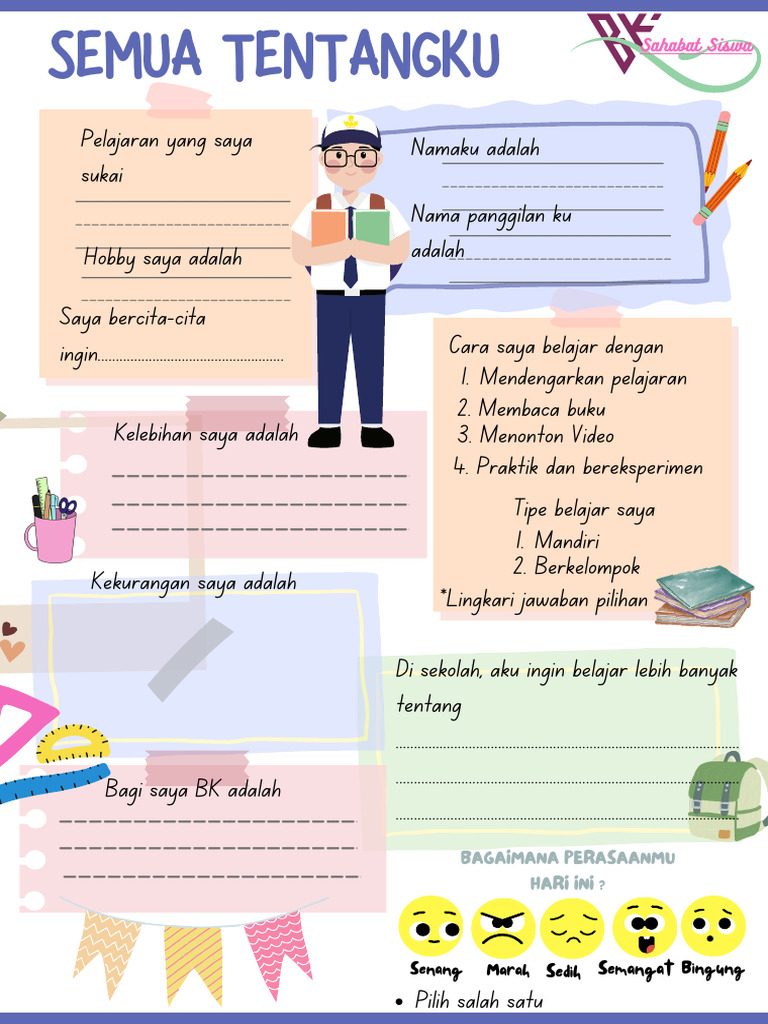 SEMUA TENTANGKU
BK
Sahabat Siswa
Pelajaran yang saya
sukai
Hobby saya adalah
Saya bercita-cita
ingin................................................
Namaku adalah
Nama panggilan ku
adalah
Cara saya belajar dengan
1. Mendengarkan pelajaran
2. Membaca buku
3. Menonton Video
4. Praktik dan bereksperimen
Tipe belajar saya
1. Mandiri
2. Berkelompok
*Lingkari jawaban pilihan
Kelebihan saya adalah
Kekurangan saya adalah
Di sekolah, aku ingin belajar lebih banyak
tentang
Bagi saya BK adalah
BAGAIMANA PERASAANMU
HARI INI ?
Senang Marah Sedih Semangat Bingung
• Pilih salah satu